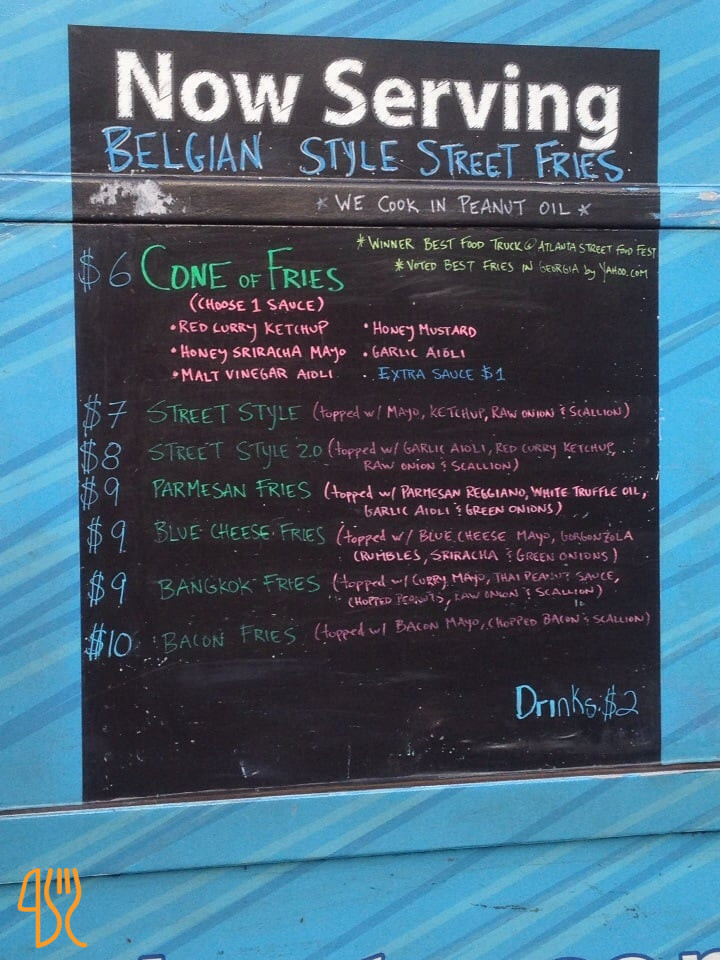 Now Serving
BELGIAN STYLE STREET FRIES
* WE COOK IN PEANUT OIL *
* WINNER BEST FOOD TRUCK @ ATLANTA STREET FOOD FEST
* VOTED BEST FRIES IN GEORGIA by YAHOO.COM
$6 CONE OF FRIES
(CHOOSE 1 SAUCE)
• RED CURRY KETCHUP • HONEY MUSTARD
• HONEY SRIRACHA MAYO • GARLIC AIOLI
• MALT VINEGAR AIOLI • EXTRA SAUCE $1
$7 STREET STYLE (topped w/ MAYO, KETCHUP, RAW ONION & SCALLION)
$8 STREET STYLE 2.0 (topped w/ GARLIC AIOLI, RED CURRY KETCHUP,
RAW ONION & SCALLION)
$9 PARMESAN FRIES (topped w/ PARMESAN REGGIANO, WHITE TRUFFLE OIL,
GARLIC AIOLI & GREEN ONIONS)
$9 BLUE CHEESE FRIES (topped w/ BLUE CHEESE MAYO, GORGONZOLA
CRUMBLES, SRIRACHA & GREEN ONIONS)
$9 BANGKOK FRIES (topped w/ CURRY MAYO, THAI PEANUT SAUCE,
CHOPPED PEANUTS, RAW ONION & SCALLION)
$10 BACON FRIES (topped w/ BACON MAYO, CHOPPED BACON & SCALLION)
Drinks: $2